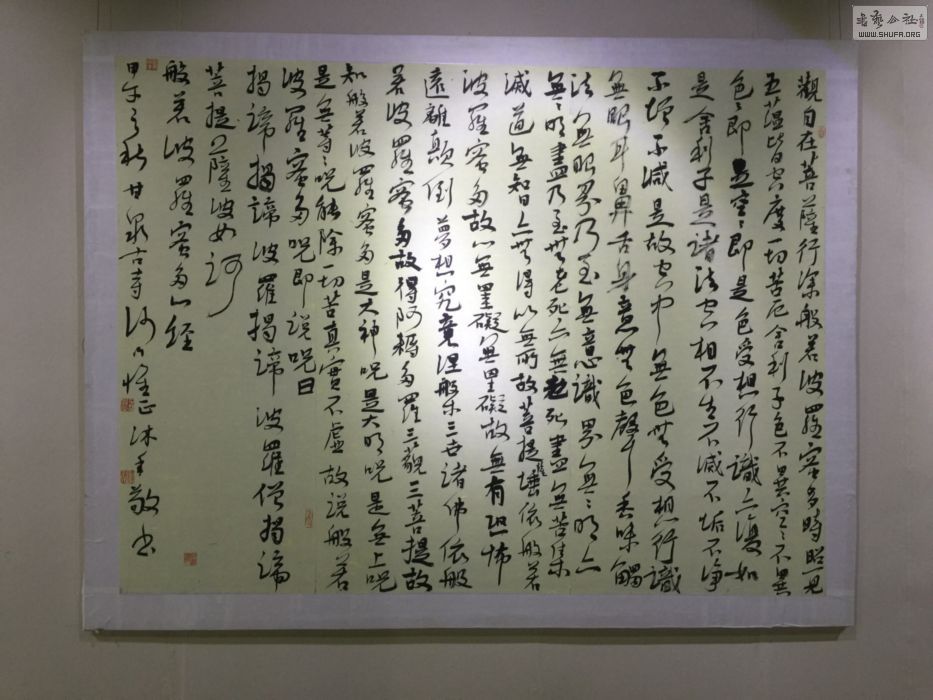 觀自在菩薩行深般若波羅蜜多時照見
五蘊皆空度一切苦厄舍利子色不異空〻不異
色〻即是空〻即是色受想行識亦復如
是舍利子是諸法空相不生不滅不垢不淨
不增不減是故空中無色無受想行識
無眼耳鼻舌身意無色聲香味觸
法無眼界乃至無意識界無〻明亦
無〻明盡乃至無老死亦無老死盡無苦集
滅道無智亦無得以無所故菩提薩埵依般若
波羅蜜多故心無罣礙無罣礙故無有恐怖
遠離顛倒夢想究竟涅槃三世諸佛依般
若波羅蜜多故得阿耨多羅三藐三菩提故
知般若波羅蜜多是大神咒是大明咒是無上咒
是無等〻咒能除一切苦真實不虛故說般若
波羅蜜多咒即說咒曰
揭諦揭諦波羅揭諦波羅僧揭諦
菩提薩婆訶
般若波羅蜜多心經
甲午之秋甘泉古寺沙門惟正沐手敬書
書藝公社
WWW.SHUFA.ORG